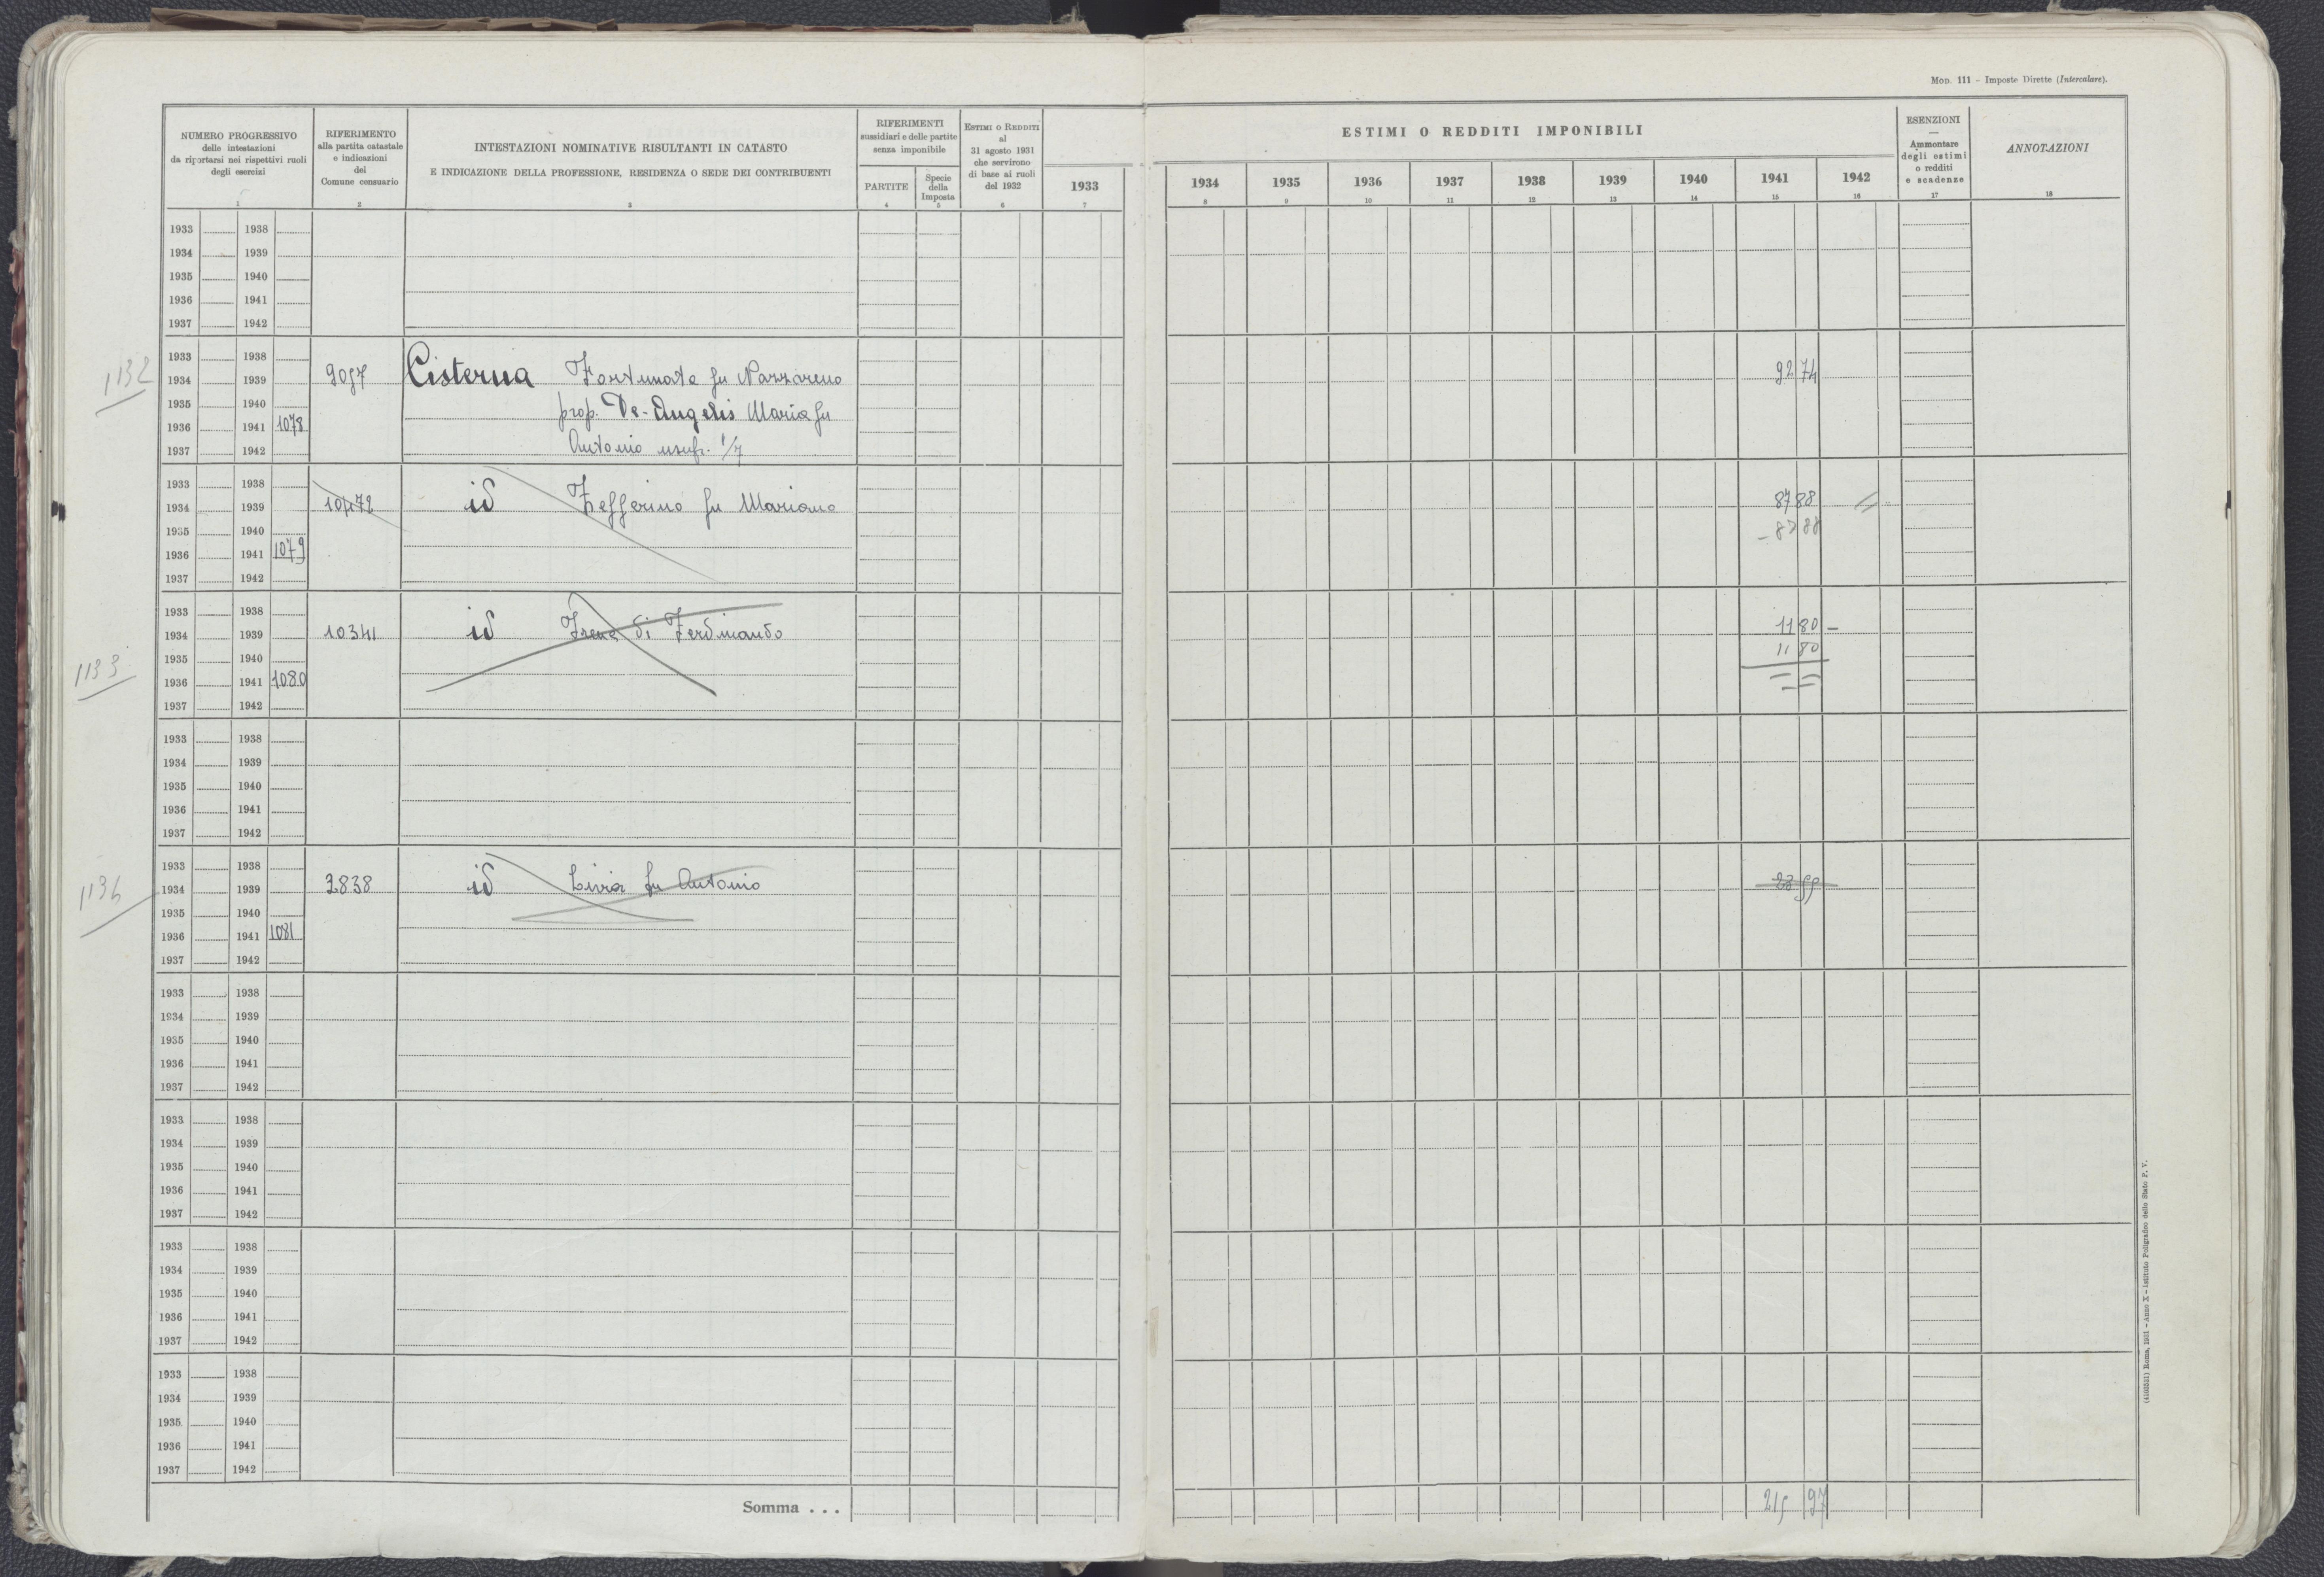 Mod. 111 - Imposte Dirette (Intercalare).
NUMERO PROGRESSIVO
delle intestazioni
da riportarsi nei rispettivi ruoli
degli esercizi
1
RIFERIMENTO
alla partita catastale
e indicazioni
del
Comune censuario
2
INTESTAZIONI NOMINATIVE RISULTANTI IN CATASTO
E INDICAZIONE DELLA PROFESSIONE, RESIDENZA O SEDE DEI CONTRIBUENTI
3
RIFERIMENTI
sussidiari e delle partite
senza imponibile
PARTITE
4
Specie
della
Imposta
5
ESTIMI O REDDITI
al
31 agosto 1931
che servirono
di base ai ruoli
del 1932
6
ESTIMI O REDDITI IMPONIBILI
1933 1934 1935 1936 1937 1938 1939 1940 1941 1942
7 8 9 10 11 12 13 14 15 16
ESENZIONI
—
Ammontare
degli estimi
o redditi
e scadenze
17
ANNOTAZIONI
18
1933 1938
1934 1939
1935 1940
1936 1941
1937 1942
1132
1933 1938
1934 1939 Cisterna Fortunata fu Nazzareno 92 74
1935 1940 prop. De-Angelis Maria fu
1936 1941 1078
1937 1942 Antonio usufr. 1/7
1933 1938
1934 1939 10472 id Zefferino fu Mariano 87 88
1935 1940 - 87 88
1936 1941 1079
1937 1942
1933 1938
1934 1939 10341 id Irene di Ferdinando 11 80 -
1133
1935 1940 11 80
1936 1941 1080
1937 1942
1933 1938
1934 1939
1935 1940
1936 1941
1937 1942
1134
1933 1938
1934 1939 2838 id Livia fu Antonio
1935 1940
1936 1941 1081
1937 1942
1933 1938
1934 1939
1935 1940
1936 1941
1937 1942
1933 1938
1934 1939
1935 1940
1936 1941
1937 1942
1933 1938
1934 1939
1935 1940
1936 1941
1937 1942
1933 1938
1934 1939
1935 1940
1936 1941
1937 1942
Somma . . . 215 97
(4103531) Roma, 1931 - Anno X - Istituto Poligrafico dello Stato P. V.